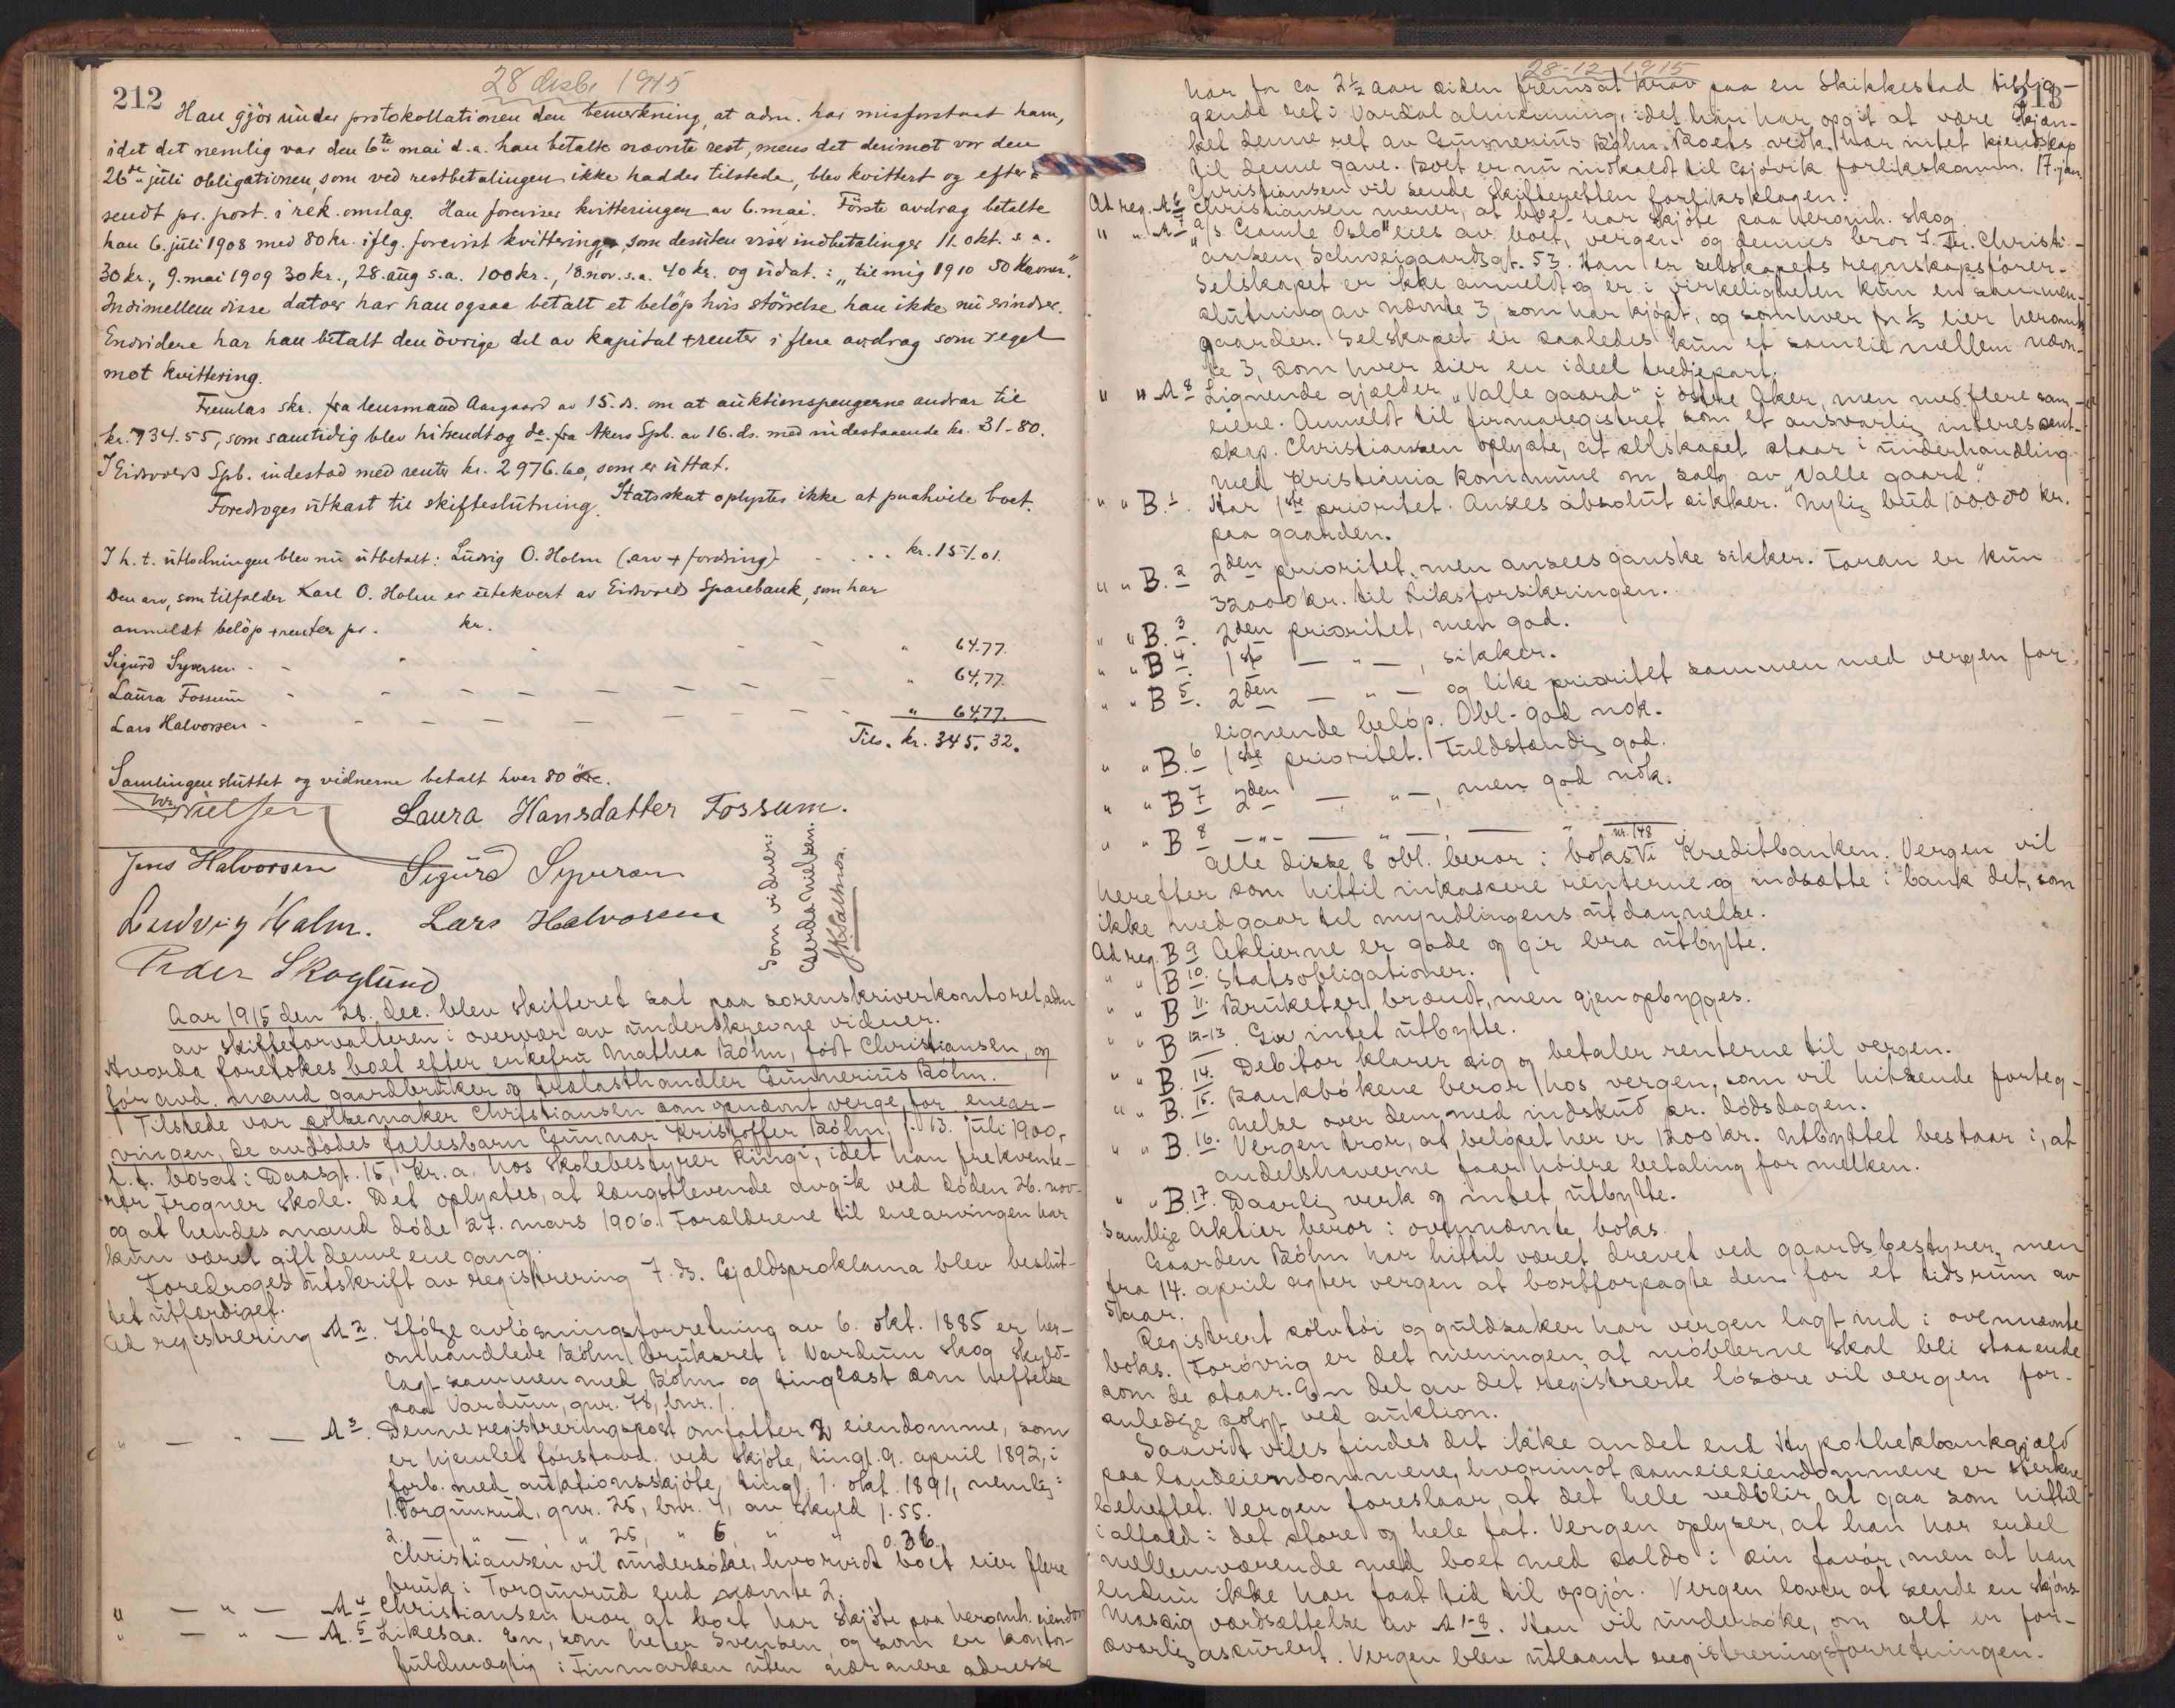 212
28 desbr 1915
Han gjör under protokollationen den bemerkning, at adm. har misforstaat ham,
idet det nemlig var den 6te mai d.a. han betalte nævnte rest, mens det derimot var den
26de juli obligationen, som ved restbetalingen ikke haddes tilstede, blev kvittert og efter-
sendt pr. post. i rek. omslag. Han foreviser kvitteringen av 6. mai. Förste avdrag betalte
han 6. juli 1908 med 80 kr. iflg. forevist kvittering, som desuten viser indbetalinger 11. okt. s.a.
30 kr., 9. mai 1909 30 kr., 28. aug s.a. 100 kr., 18. nov. s.a. 40 kr. og udat. : „til mig 1910 50 Kroner."
Indimellem disse datoer har han ogsaa betalt et belöp hvis störrelse han ikke nu erindrer.
Endvidere har han betalt den övrige del av kapital + renter i flere avdrag som regel
mot kvittering.
Fremlas skr. fra lensmand Aasgaard av 15. ds. om at auktionspengerne andrar til
kr. 734.55, som samtidig blev hitsendt og do. fra Akers Spb. av 16. ds. med indestaaende kr. 31-80.
I Eidsvolds Spb. indestod med renter kr. 2976.60, som er uttat.
Foredroges utkast til skifteslutning. Statsskat oplystes ikke at paahvile boet.
I h. t. utlodningen blev nu utbetalt: Ludvig O. Holm (arv + fordring) - - .. kr. 151.01.
Den arv, som tilfalder Karl O. Holm er utekvert av Eidsvolds Sparebank, som har
anmeldt belöp + renter pr. kr.
Sigurd Syversen - - - - - " 64.77.
Laura Fossum - - - - - - - " 64,77.
Lars Halvorsen - - - - - - - " 64.77.
Tils. kr. 345.32.
Samlingen sluttet og vidnerne betalt hver 80 öre.
Nielsen Laura Hansdatter Fossum.
Jens Halvorsen Sigurd Syversen
Ludvig Holm. Lars Halvorsen
Peder Skoglund
Som vidner:
Gerda Nielsen.
Aar 1915 den 28. dec. blev skifteret sat paa sorenskriverkontoret, adm
av skifteforvalteren i overvær av underskrevne vidner.
Hvorda foretokes boet efter enkefru Mathea Böhn, födt Christiansen, og
för avd. mand gaardbruker og trælasthandler Gunnerius Böhn.
Tilstede var pölsemaker Christiansen som opnævnt verge for enear-
vingen, de avdödes fællesbarn Gunnar Kristoffer Böhn, f. 13. juli 1900,
f. t. bosat: Daasgt. 15, Kr.a. hos skolebestyrer Ringi, idet han frekvente-
rer Frogner skole. Det oplystes, at længstlevende avgik ved döden 26. nov.
og at hendes mand döde 27. mars 1906. Forældrene til enearvingen har
kun været gift denne ene gang.
Foredroges utskrift av registrering 7. ds. Gjældsproklama blev beslut-
tet utfærdiget.
Ad registrering A 2. Ifölge avlösningsforretning av 6. okt. 1885 er her-
omhandlede Böhn bruksret i Vardum skog skyld-
lagt sammen med Böhn og tinglæst som heftelse
paa Vardum, gnr. 78, bnr. 1.
" — " — A 3. Denne registreringspost omfatter 2 eiendomme, som
er hjemlet förstavd. ved skjöte, tingl. 9. april 1892, i
forb. med auktionsskjöte, tingl. 1. okt. 1891, nemlig:
1. Torgunrud, gnr. 25, bnr. 4, av skyld 1.55.
2. — " — " 25, " 6 " " 0.36.
Christiansen vil undersöke, hvorvidt boet eier flere
bruk i Torgunrud end nævnte 2.
" — " — A 4 Christiansen tror at boet har skjöte paa heromh. eiendom
" — " — A. 5 Likesaa. En, som heter Svensen og som er kontor-
fuldmægtig i Finmarken uten nærmere adresse
28-12-1915
213
har for ca 2½ aar siden fremsat krav paa en Skikkestad tillig-
gende ret i Vardal almenning, idet han har opgit at være skjæn-
ket denne ret av Gunnerius Böhn. Boets vedk. har intet kjendskap
til denne gave. Boet er nu indkaldt til Gjövik forlikskomm. 17. jan.
Christiansen vil sende skifteretten forliksklagen.
Ad reg. A 6 Christiansen mener, at boet har skjöte paa heromh. skog
" " A 7 A/s Gamle Oslo" eies av boet, vergen og dennes bror J. Fr. Christi-
ansen, Schweigaardsgt. 53. Han er selskapets regnskapsförer.
Selskapet er ikke anmeldt og er i virkeligheten kun en sammen-
slutning av nævnte 3, som har kjöpt, og som hver for ⅓ eier heromh.
gaarder. Selskapet er saaledes kun et sameie mellem nævn-
te 3, som hver eier en ideel tredjepart.
" " A 8 Lignende gjælder „Valle gaard" i östre Aker, men med flere sam-
eiere. Anmeldt til firmaregistret som et ansvarlig interessent-
skap. Christiansen oplyste, at selskapet staar i underhandling
med Kristiania kommune om salg av „Valle gaard".
" " B. 1. Har 1ste prioritet. Ansees absolut sikker. Nylig bud 100.000 kr.
paa gaarden.
" " B. 2 2den prioritet, men ansees ganske sikker. Foran er kun
32000 kr. til Liksforsikringen.
" " B. 3. 2den prioritet, men god.
" " B 4. 1ste — " —, sikker.
" " B 5. 2den — " — og like prioritet sammen med vergen for
lignende belöp. Obl. god nok.
" " B. 6 1ste prioritet. Fuldstændig god.
" " B 7 2den — " —, men god nok.
" " B 8 — " — — " — —
Alle disse 8 obl. beror i boks nr. 148 i Kreditbanken. Vergen vil
herefter som hittil inkassere renterne og indsætte i bank det, som
ikke medgaar til myndlingens utdannelse.
Ad reg. B 9 Aktierne er gode og gir bra utbytte.
" " B 10. Statsobligationer.
" " B 11. Bruket er brændt, men gjenopbygges.
" " B 12-13. Gir intet utbytte.
" " B. 14. Debitor klarer sig og betaler renterne til vergen.
" " B. 15. Bankbökene beror hos vergen, som vil hitsende forteg-
nelse over dem med indskud pr. dödsdagen.
" " B. 16. Vergen tror, at belöpet her er 1200 kr. Utbyttet bestaar i, at
andelshaverne faar höiere betaling for melken.
" " B. 17. Daarlig verk og intet utbytte.
Samtlige Aktier beror i ovennævnte boks.
Gaarden Böhn har hittil været drevet ved gaardsbestyrer, men
fra 14. april agter vergen at bortforpagte den for et tidsrum av
5 aar.
Registrert sölvtöi og guldsaker har vergen lagt ind i ovennævnte
boks. Forövrig er det meningen, at möblerne skal bli staaende
som de staar. En del av det registrerte lösöre vil vergen for-
anledige solgt ved auktion.
Saavidt vites findes det ikke andet end Hypothekbankgjæld
paa landeiendommene, hvorimot sameieeiendommene er sterkere
beheftet. Vergen foreslaar, at det hele vedblir at gaa som hittil
ialfald i det store og hele tat. Vergen oplyser, at han har endel
mellemværende med boet med saldo i sin favör, men at han
endnu ikke har faat tid til opgjör. Vergen lover at sende en skjöns-
mæssig værdsættelse av A 1-8. Han vil undersöke, om alt er for-
svarlig assurert. Vergen blev utlaant registreringsforretningen.